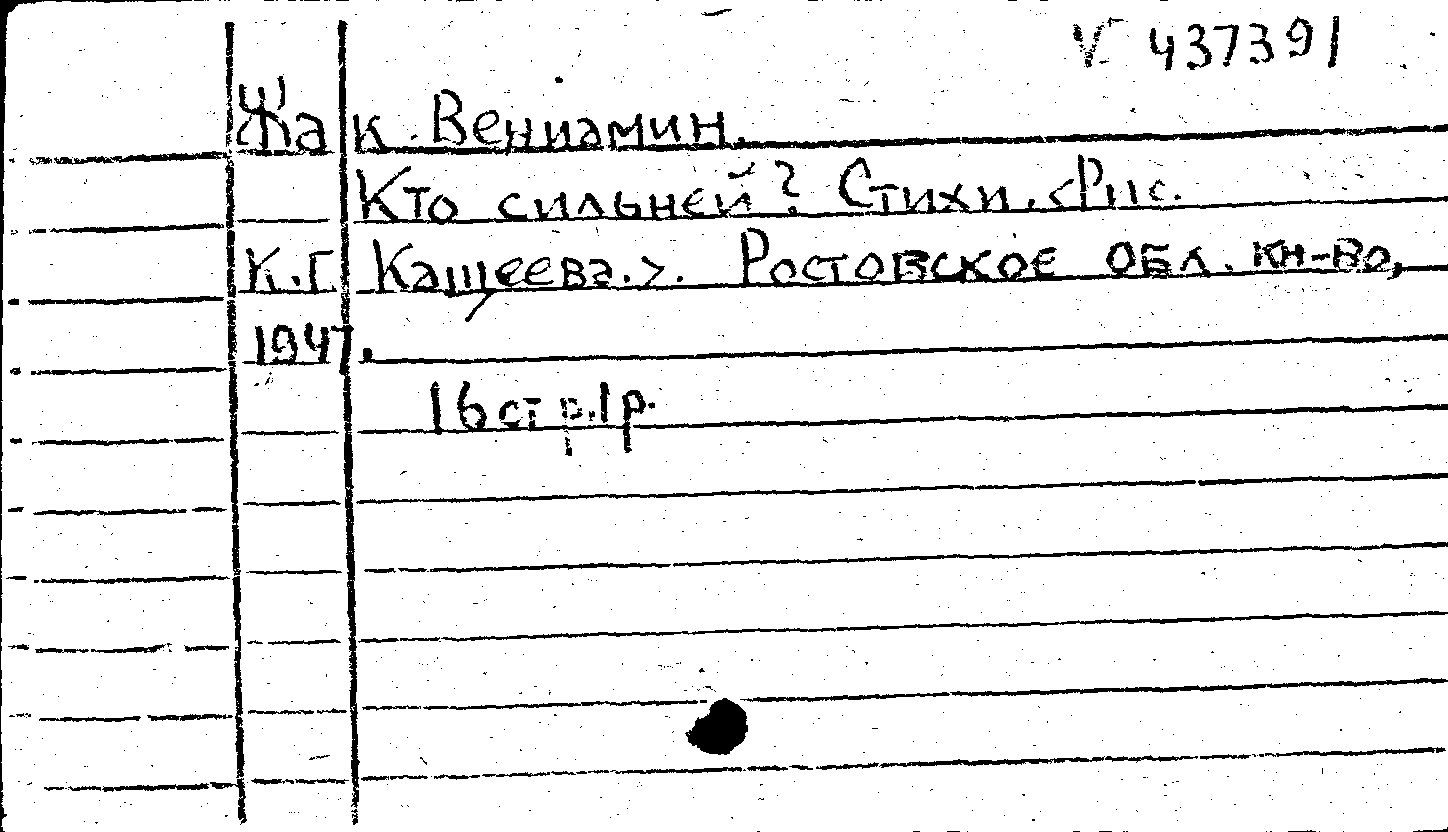 V 437391
Жак Вениамин.
Кто сильней? Стихи. <Рис.
К.Г Кащеева.>. Ростовское обл. кн-во,
1947.
16 стр. 1 р.